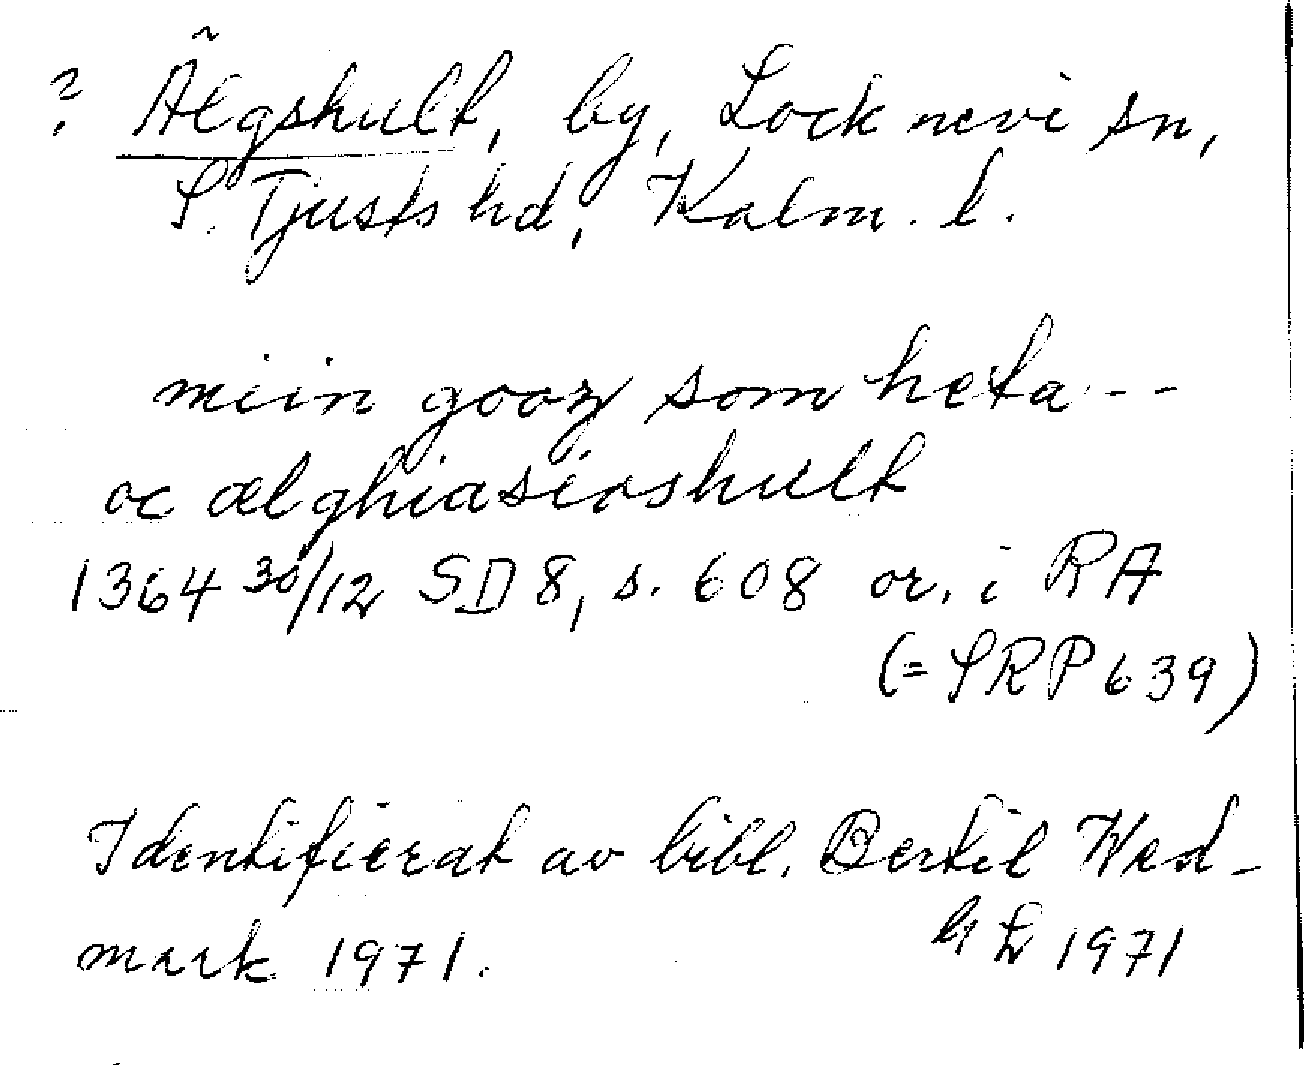 ? Älgshult, by, Locknevi sn,
S. Tjusts hd, Kalm. l.
miin gooz som heta ---
oc ælghiasiöshult
1364 30/12 SD 8, s. 608 or. i RA
(= SRP 639)
Identifierat av bibl. Bertil Wed-
mark 1971.
1971